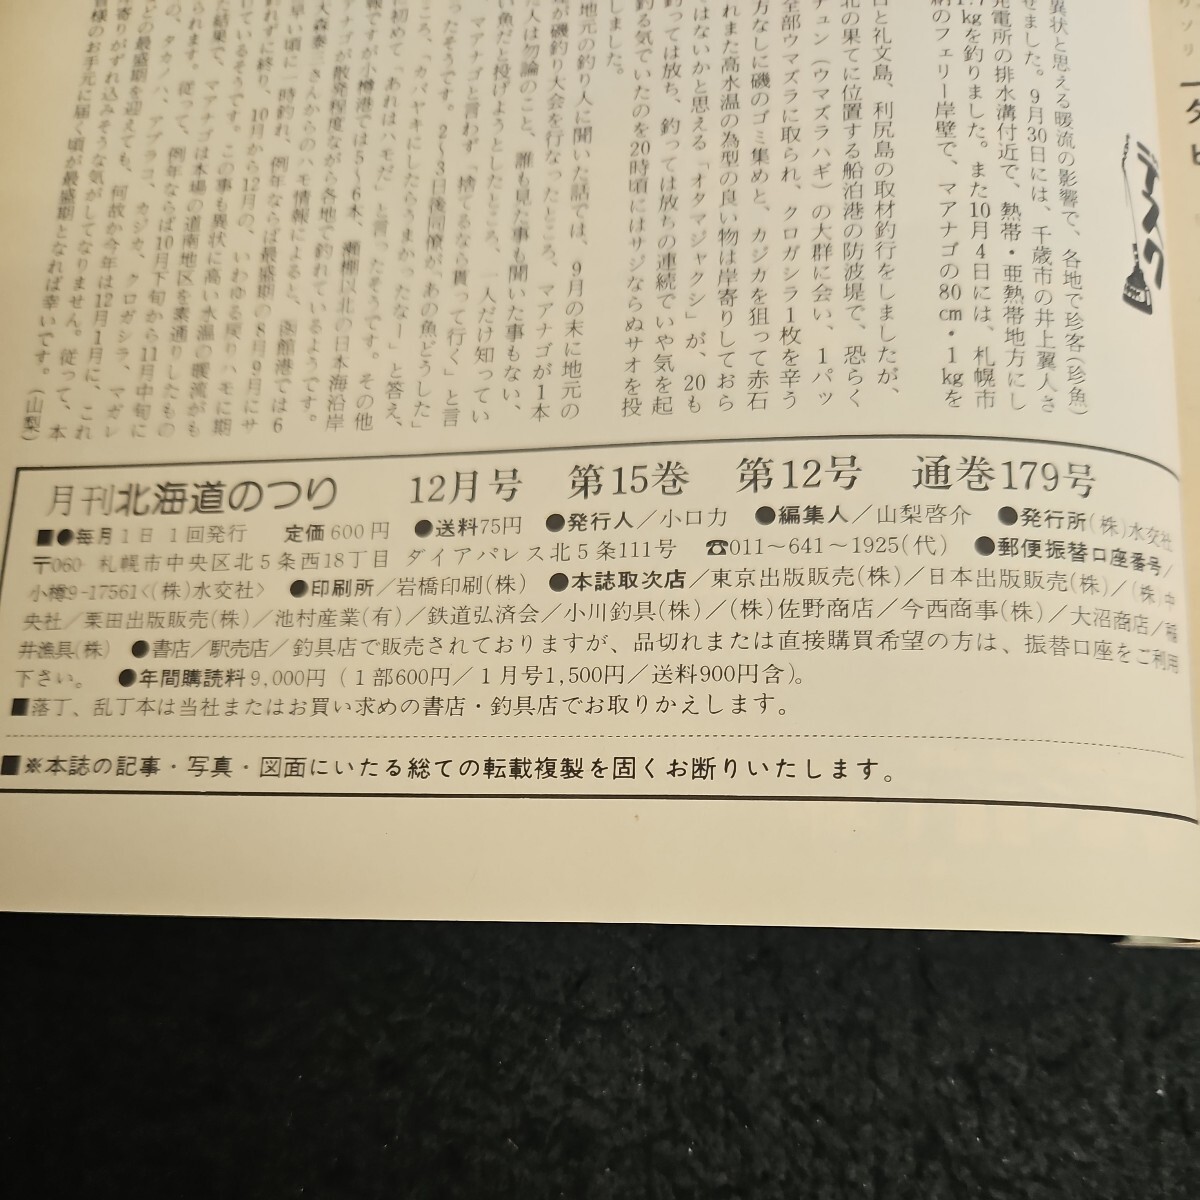 異状と思える暖流の影響で、各地で珍客(珍魚)
せました。9月30日には、千歳市の井上翼人さ
発電所の排水溝付近で、熱帯・亜熱帯地方にし
kgを釣りました。また10月4日には、札幌市
納のフェリー岸壁で、マアナゴの80cm・1kgを
日と礼文島、利尻島の取材釣行をしましたが、
北の果てに位置する船泊港の防波堤で、恐らく
チュン(ウマズラハギ)の大群に会い、1パッ
全部ウマズラに取られ、クロガシラ1枚を辛う
方なしに磯のゴミ集めと、カジカを狙って赤石
れまた高水温の為型の良い物は岸寄りしておら
ではないかと思える「オタマジャクシ」が、20も
釣っては放ち、釣っては放ちの連続でいや気を起
釣る気でいたのを20時頃にはサジならぬサオを投
しました。
地元の釣り人に聞いた話では、9月の末に地元の
が磯釣り大会を行なったところ、マアナゴが1本
た人は勿論のこと、誰も見た事も聞いた事もない、
い魚だと投げようとしたところ、一人だけ知ってい
マアナゴと言わず「捨てるなら貰って行く」と言
たそうです。2~3日後同僚が、あの魚どうした」
ころ、「カバヤキにしたらうまかったなー」と答え、
初めて、「あれはハモだ」と言ったそうです。その他
報ですが小樽港では5~6本、瀬棚以北の日本海沿岸
アナゴが散発程度ながら各地で釣れているようです。
大森泰 さんからのハモ情報によると、函館港では6
早い頃に一時釣れ、例年ならば最盛期の8月9月にサ
釣れずに終り、10月から12月の、いわゆる戻りハモに期
けているそうです。この事も異状に高い水温の暖流がも
た結果で、マアナゴは本場の道南地区を素通りしたもの
られます。従って、例年ならば10月下旬から11月中旬に
の、タカノハ、アブラコ、カジカ、クロガシラ、マガレ
どの最盛期を迎えても、何故か今年は12月1月に、これ
寄りがずれ込みそうな気がしてなりません。従って、本
皆様のお手元に届く頃が最盛期となれば幸いです。(山梨)
月刊北海道のつり 12月号 第15巻 第12号 通巻179号
■●毎月1日1回発行 定価600円 ●送料75円 ●発行人/小口力 ●編集人/山梨啓介 ●発行所(株)水交社
〒060 札幌市中央区北5条西18丁目 ダイアパレス北5条111号 ☎011~641~1925(代) ●郵便振替口座番号/
小樽9-17561<(株)水交社> ●印刷所/岩橋印刷(株) ●本誌取次店/東京出版販売(株)/日本出版販売(株)/(株)中
央社/栗田出版販売(株)/池村産業(有)/鉄道弘済会/小川釣具(株)/(株)佐野商店/今西商事(株)/大沼商店/福
井漁具(株) ●書店/駅売店/釣具店で販売されておりますが、品切れまたは直接購買希望の方は、振替口座をご利用
下さい。 ●年間購読料9,000円(1部600円/1月号1,500円/送料900円含)。
■落丁、乱丁本は当社またはお買い求めの書店・釣具店でお取りかえします。
■※本誌の記事・写真・図面にいたる総ての転載複製を固くお断りいたします。